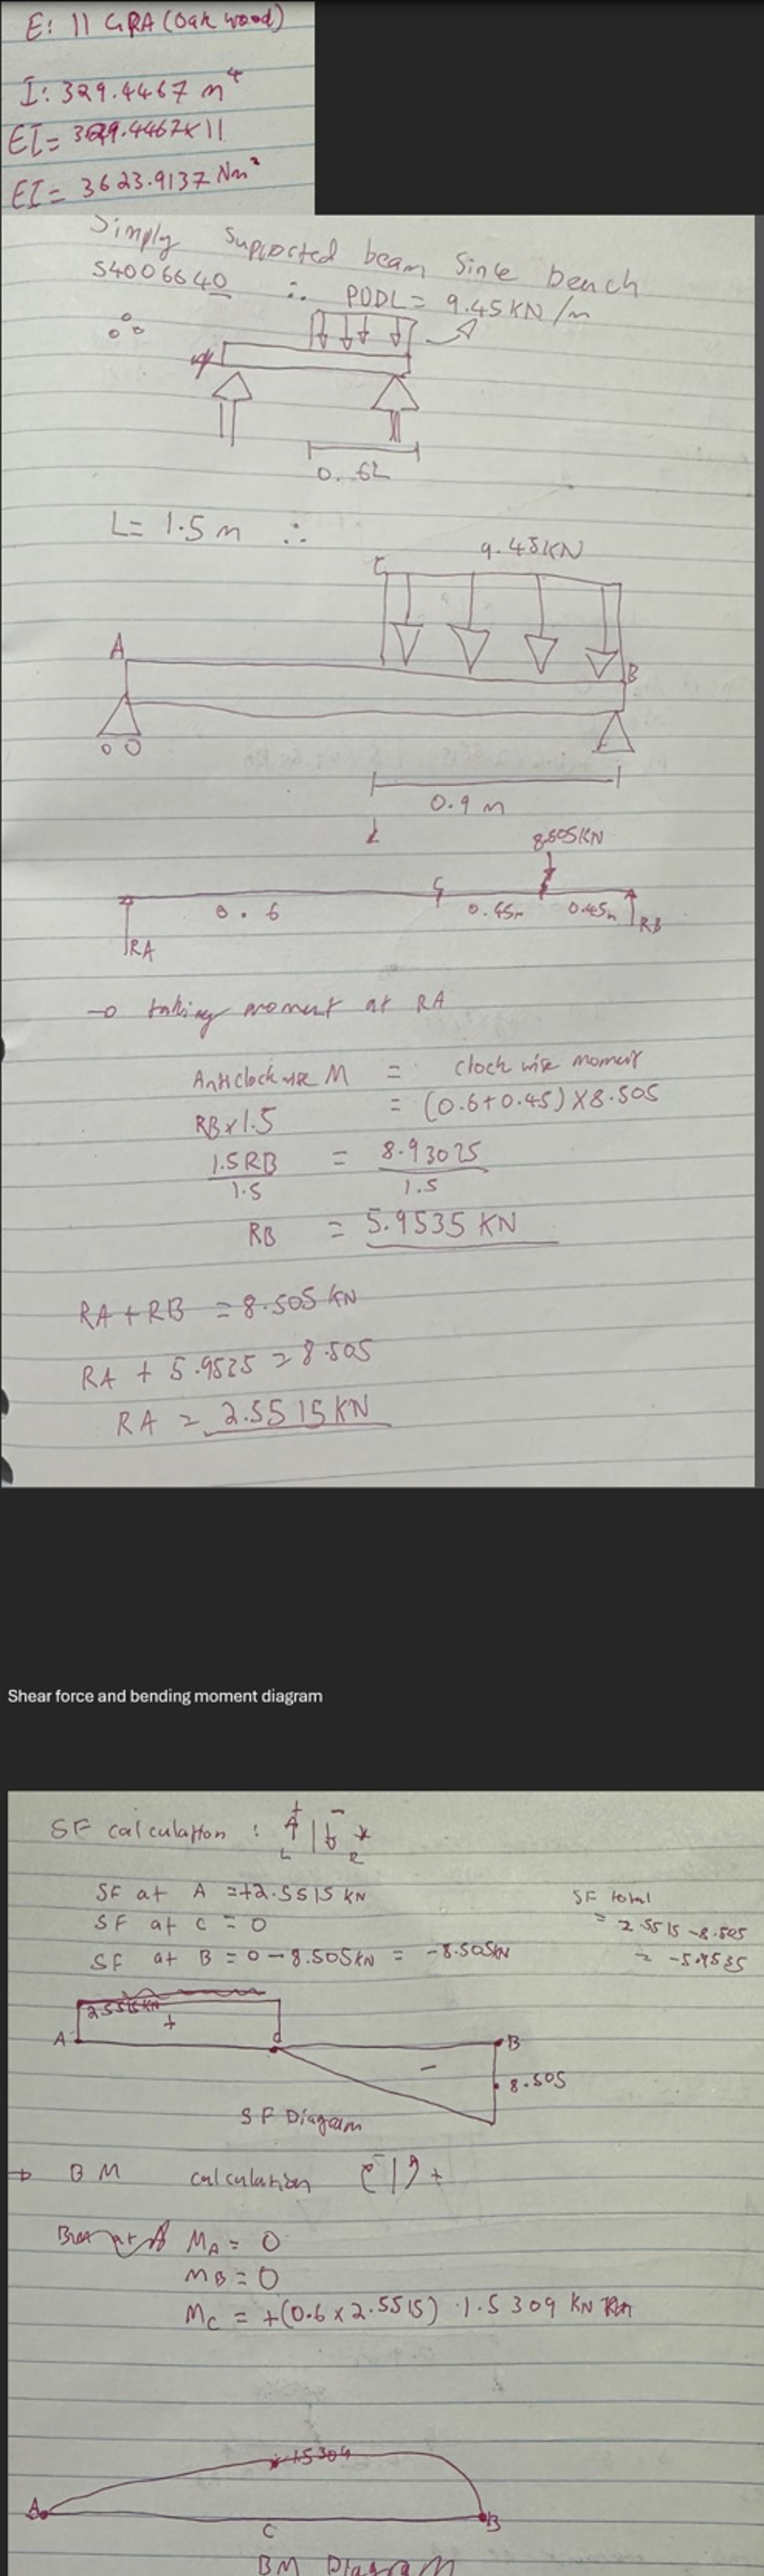 E: 11 GPA (Oak wood)
I: 329.4467 m⁴
EI = 329.4467×11
EI = 3623.9137 Nm²
Simply Supported beam Since bench
S4006640 ∴ PUDL = 9.45 KN/m
0.6L
L = 1.5 m ∴
9.45KN
C
A
B
0.9 m
8.505KN
C
0.6
0.45m
0.45m
RB
RA
→ taking moment at RA
Anticlockwise M = Clock wise moment
RB×1.5 = (0.6+0.45)×8.505
1.5RB = 8.93025
1.5 1.5
RB = 5.9535 KN
RA + RB = 8.505 KN
RA + 5.9535 = 8.505
RA = 2.5515KN
Shear force and bending moment diagram
SF calculation : + | -
L R
SF at A = +2.5515 KN
SF total
SF at C = 0
= 2.5515 - 8.505
SF at B = 0 - 8.505KN = -8.505KN
= -5.9535
2.5515KN
+
A
B
-
8.505
SF Diagram
→ BM calculation - | +
MA = 0
MB = 0
MC = +(0.6×2.5515) 1.5309 KN
1.5309
A
B
C
BM Diagram